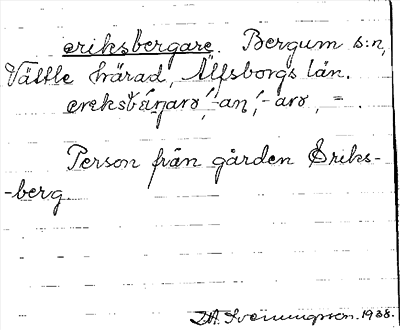 eriksbergare. Bergum s:n,
Vättle härad, Älfsborgs län.
-an, -arə, = .
Person från gården Eriks-
-berg.
1938.